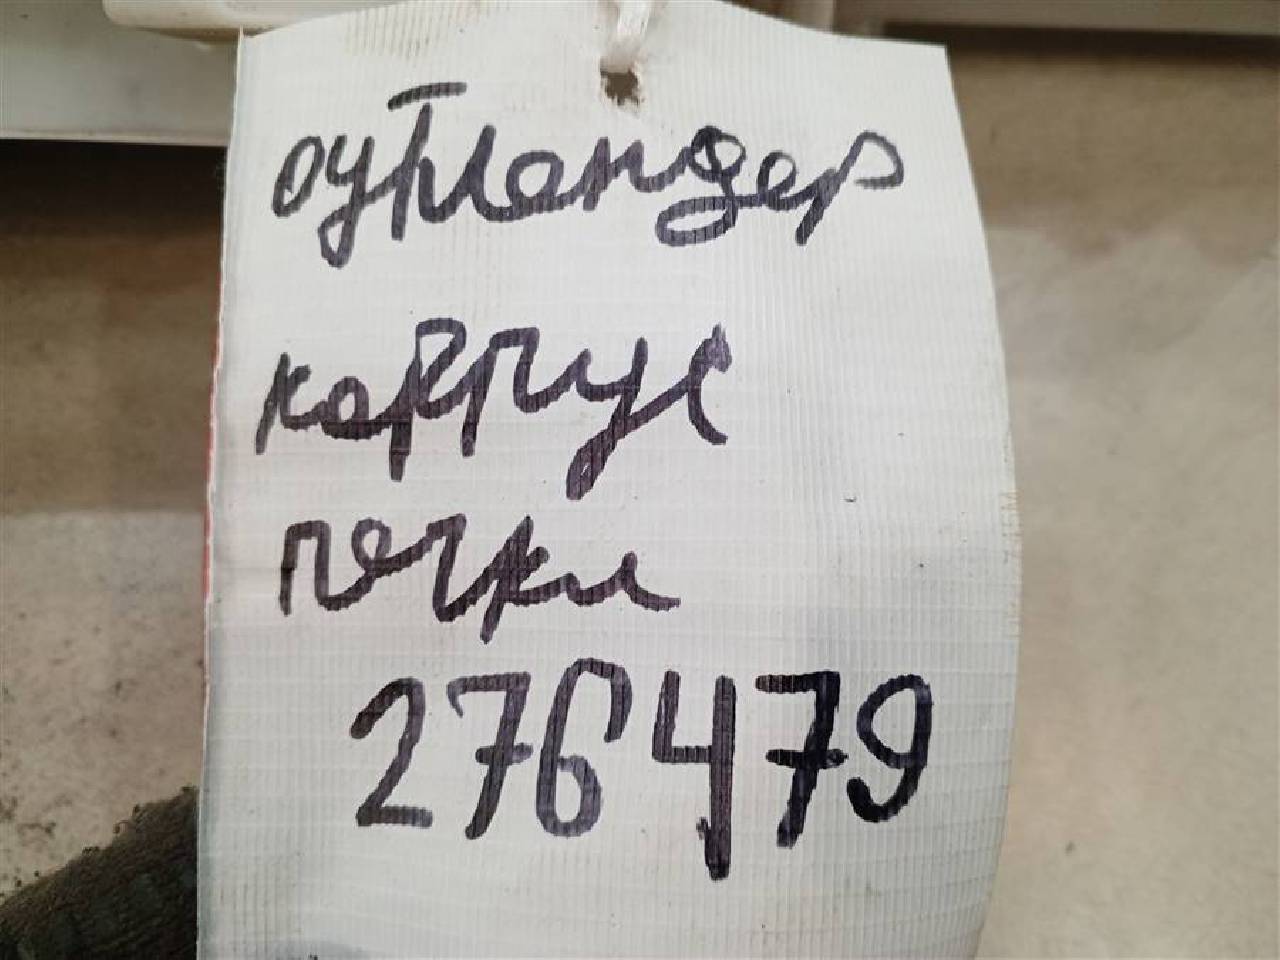 оутландер
корпус
печки
276479